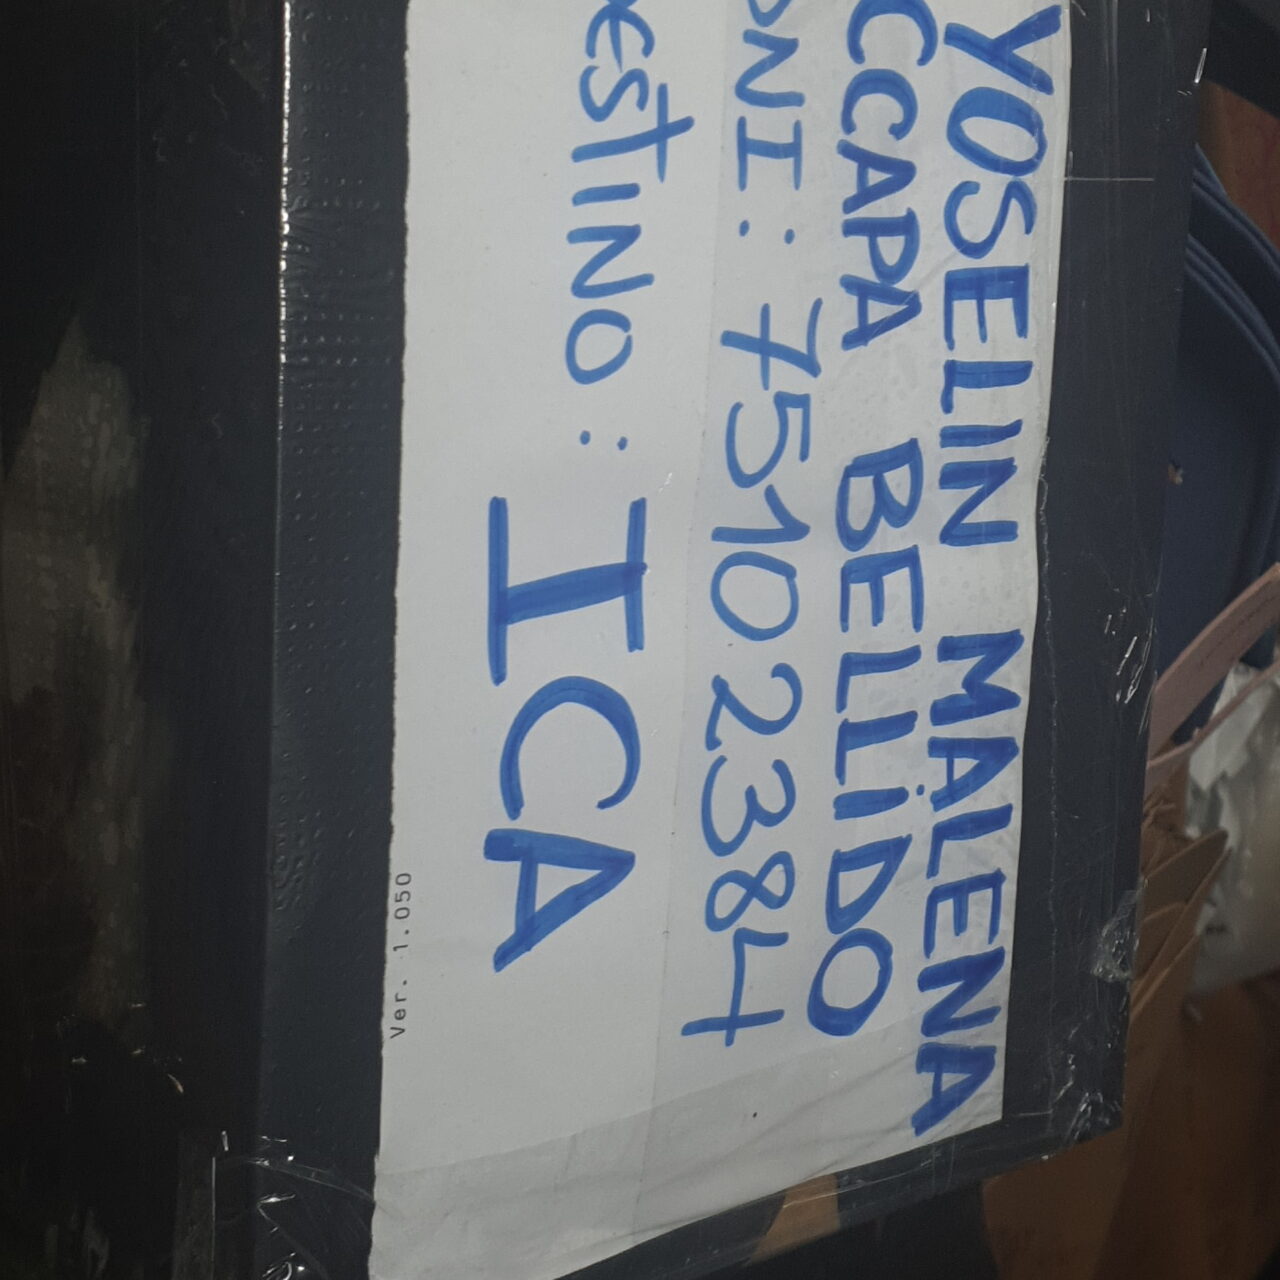 YOSELIN MALENA
CCAPA BELLIDO
DNI: 75102384
DESTINO: ICA
Ver. 1.050